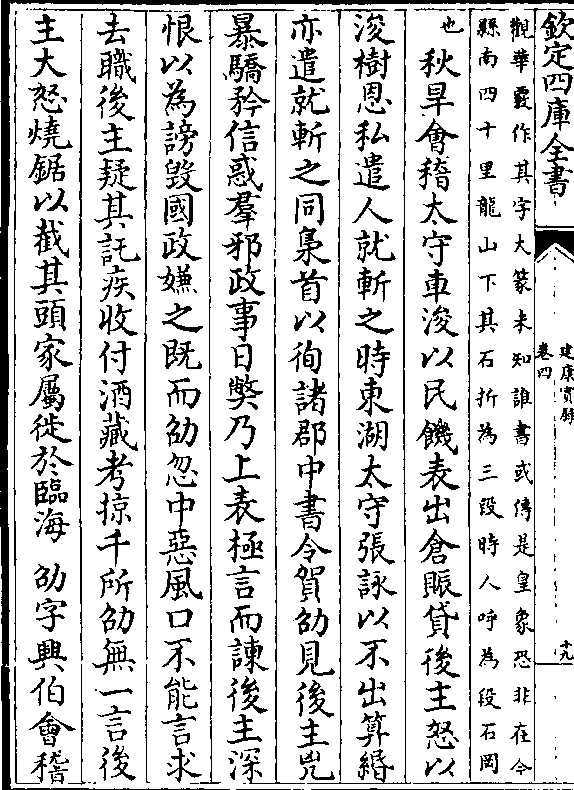 欽定四庫全書
建康實録
卷四
十九
觀華覈作其字大篆未知誰書或傳是皇象恐非在今
縣南四十里龍山下其石折為三段時人呼為段石岡
也　秋旱會稽太守車浚以民饑表出倉賑貸後主怒以
浚樹恩私遣人就斬之時東湖太守張詠以不出算緡
亦遣就斬之同梟首以徇諸郡中書令賀劭見後主兇
暴驕矜信惑羣邪政事日弊乃上表極言而諫後主深
恨以為謗毀國政嫌之既而劭忽中惡風口不能言求
去職後主疑其託疾收付酒藏考掠千所劭無一言後
主大怒燒鋸以截其頭家屬徙於臨海　劭字興伯會稽